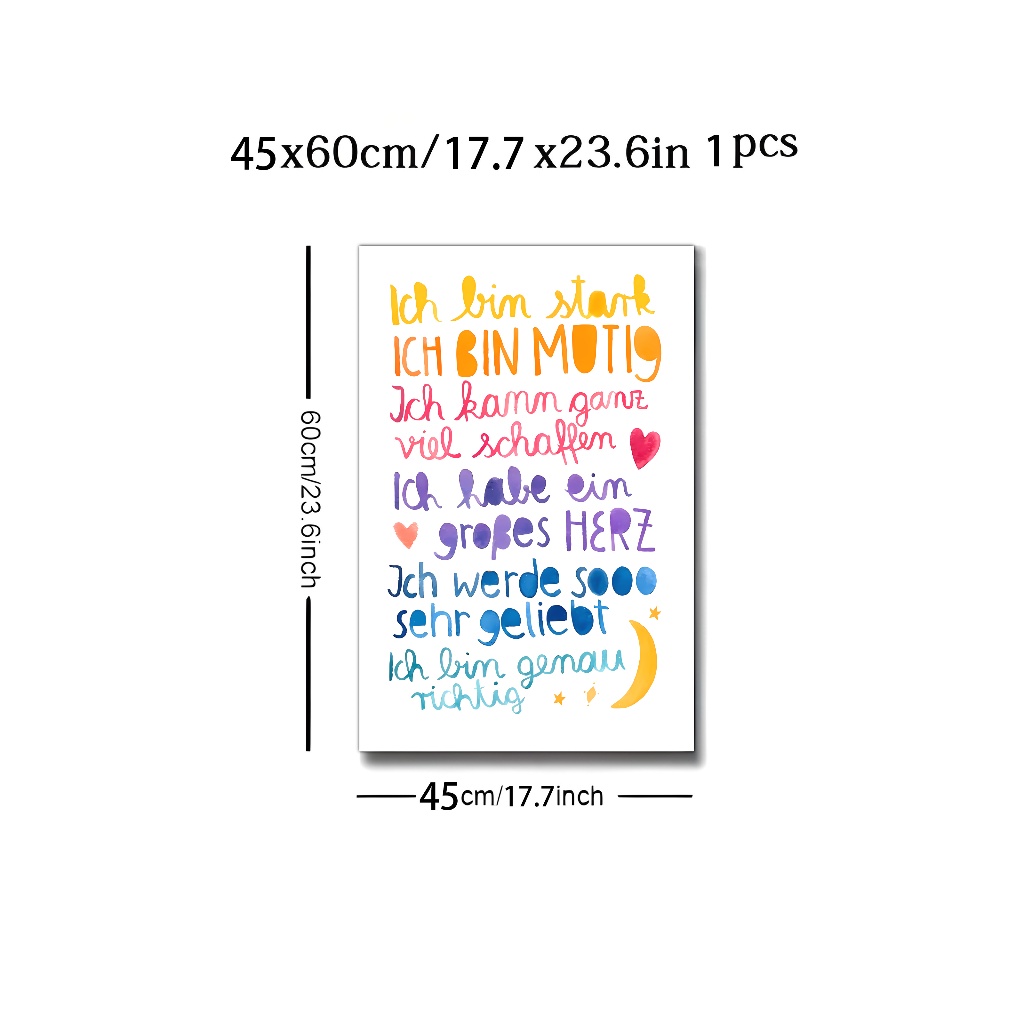 45x60cm/17.7x23.6in 1pcs
60cm/23.6inch
Ich bin stark
ICH BIN MUTIG
Ich kann ganz
viel schaffen
Ich habe ein
großes HERZ
Ich werde sooo
sehr geliebt
Ich bin genau
richtig
45cm/17.7inch